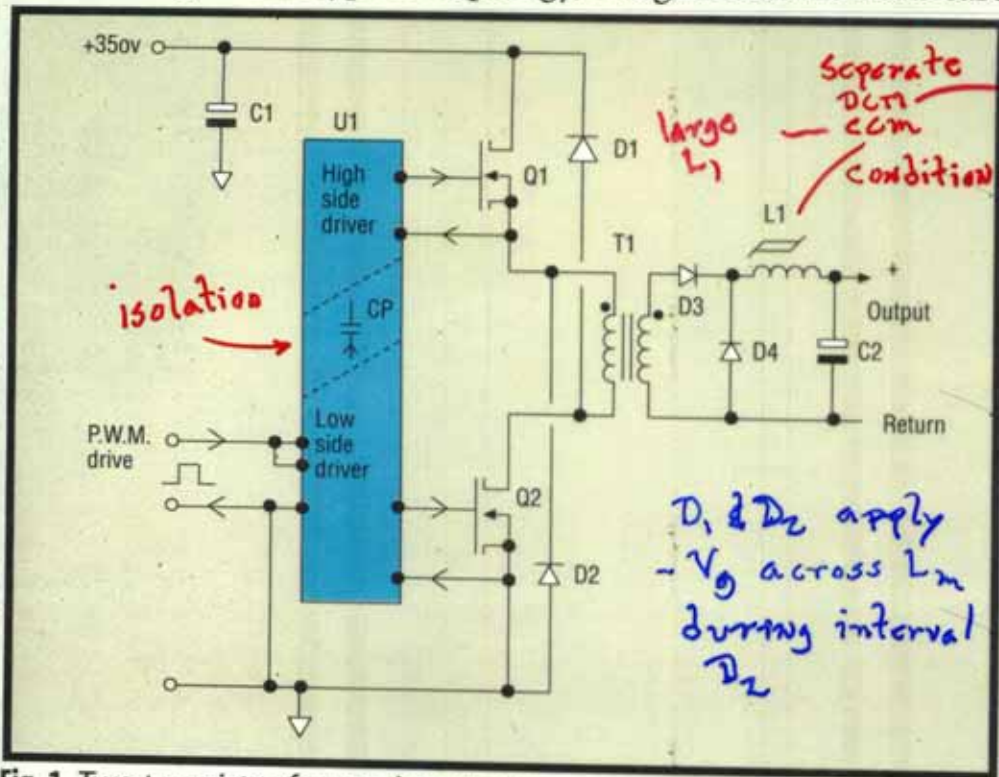 +350v
C1
U1
High
side
driver
CP
Low
side
driver
P.W.M.
drive
Q1
D1
Q2
D2
T1
D3
D4
L1
+
Output
C2
Return
isolation
large
L1
separate
DCM
ccm
condition
D1 & D2 apply
- Vg across Lm
during interval
D2
Fig. 1. Two-transistor forward